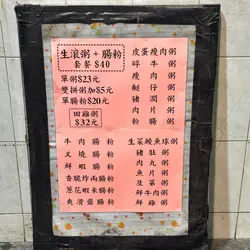 生滾粥+腸粉
套餐 $40
單粥$23元
雙拼粥加$5元
單腸粉$20元
田雞粥
$32元
皮蛋瘦肉粥
碎牛粥
瘦肉粥
艇仔粥
豬潤粥
肉片粥
粉腸粥
牛肉腸粉
叉燒腸粉
鮮蝦腸粉
香脆炸兩腸粉
蔥花蝦米腸粉
爽滑齋腸粉
生菜鯪魚球粥
豬肚粥
肉丸粥
魚片粥
及第粥
鮮牛肉粥
鮮蝦粥